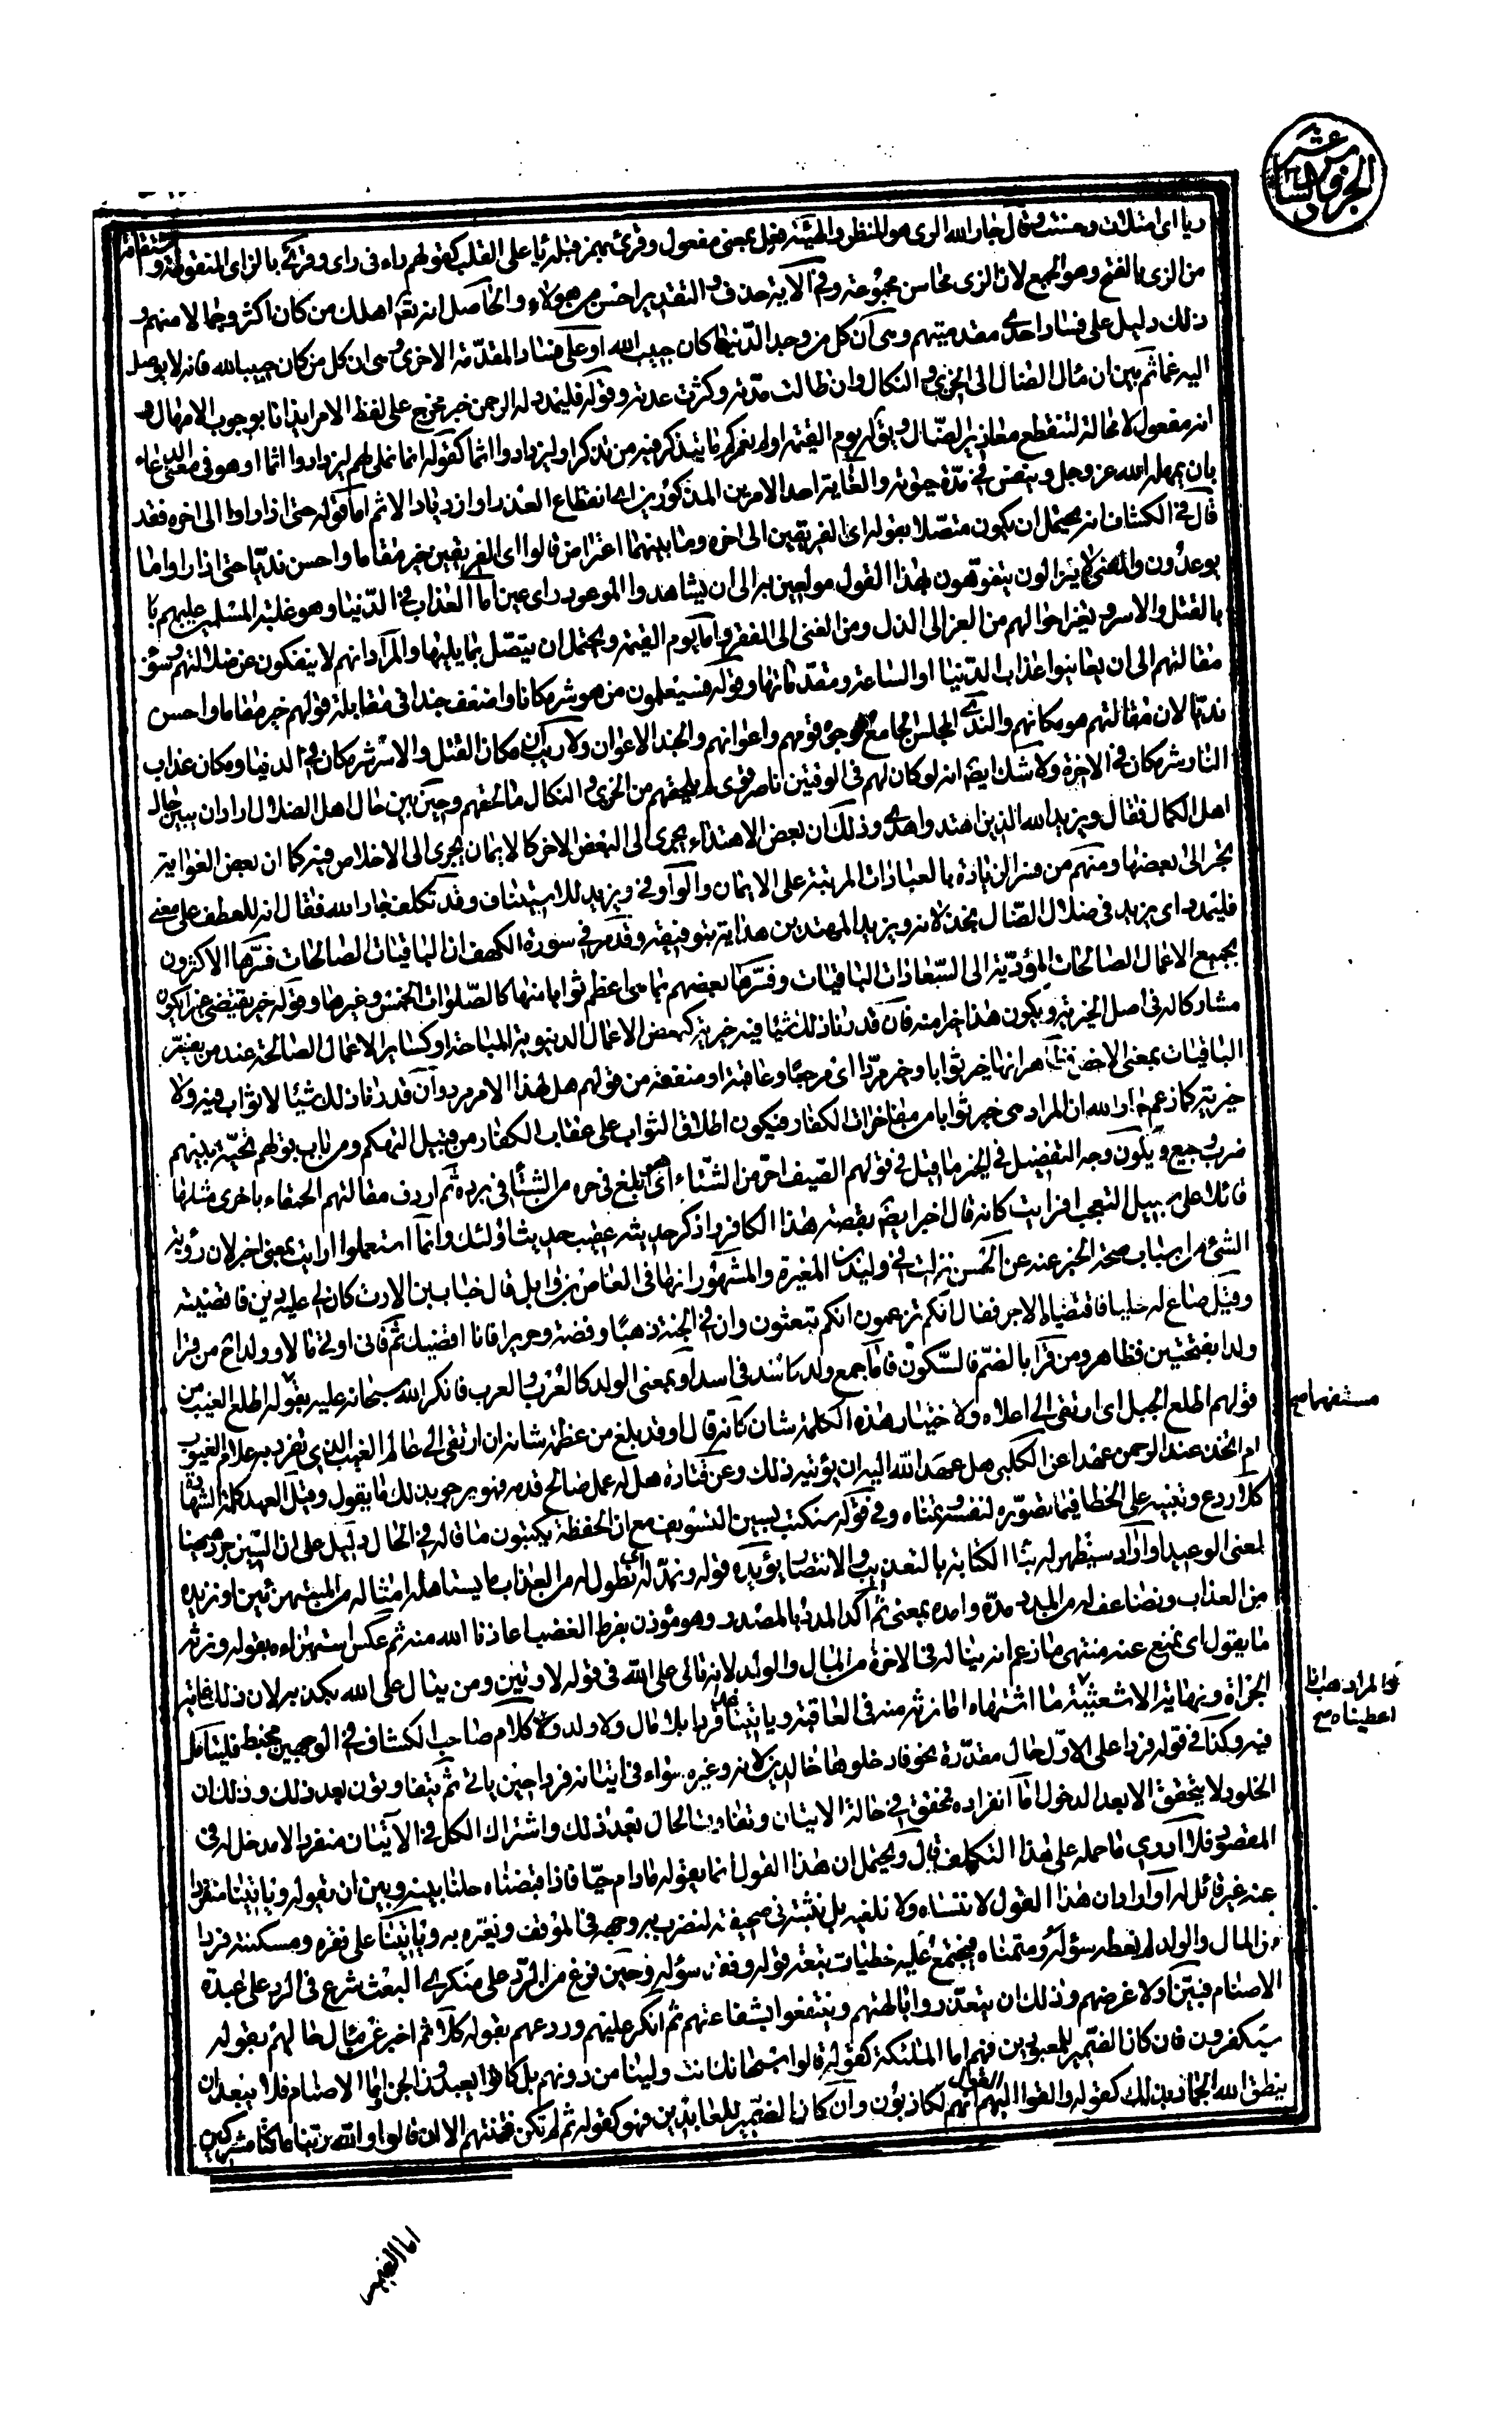 الجزو السادس عشر
ريا اى امتلات وحسنت وقال جار الله الرى هو المنظر والهيئة فعل بمعنى مفعول وقرئ بهمز قبله ريا على القلب كقولهم راء فى راى وقرئ بالزاى المنقوطة واشتقاقه
من الزى بالفتح وهو الجمع لان الزى محاسن مجموعة وفى الآية حذف والتقدير احسن من هؤلاء والحاصل انه تعم اهلك من كان اكثر وجمالا منهم و
ذلك دليل على فساد احدى مقدمتيهم وهى ان كل من وجد الدنيا كان حبيب الله او على فساد المقدمة الاخرى وهى ان كل من كان حبيبا لله فانه لا يوصل
اليه غما ثم بين ان مئال الضال الى الخزى و النكال وان طالت مدته وكثرت عدته وقوله فليمدد له الرحمن خبر مخرج على لفظ الامر ايذانا بوجوب الامهال و
انه مفعول لا محالة لتنقطع معاذير الضال ويقال له يوم القيمة اولم نعمركم ما يتذكر فيه من تذكر او ليزدادوا اثما كقوله انما نملى لهم ليزدادوا اثما او هو فى معنى الدعاء
بان يمهله الله عز وجل وينفس فى مدة حيوته والغاية احد الامرين المذكورين اى انقطاع العذر او ازدياد الاثم اما قوله حتى اذا راوا الى اخره فقد
قال فى الكشاف انه يحتمل ان يكون متصلا بقوله اى الفريقين الى اخره وما بينهما اعتراض قالوا اى الفريقين خير مقاما واحسن نديا حتى اذا راوا ما
يوعدون والمعنى لا يزالون يتفوهون بهذا القول مولعين به الى ان يشاهدوا الموعود راى عين اما العذاب فى الدنيا وهو غلبة المسلمين عليهم با
بالقتل والاسر وتغير احوالهم من العز الى الذل ومن الغنى الى الفقر واما يوم القيمة ويحتمل ان يتصل بما يليها والمراد انهم لا ينفكون عن ضلالتهم وسوء
مقالتهم الى ان يعاينوا عذاب الدنيا او الساعة ومقدماتها وقوله فسيعلمون من هو شر مكانا واضعف جندا فى مقابلة قولهم خير مقاما واحسن
نديا لان مقالتهم هو مكانهم والندى المجلس الجامع لوجوه قومهم واعوانهم والجند الاعوان ولا ريب ان مكان القتل والاسر شر مكان فى الدنيا ومكان عذاب
النار شر مكان فى الاخرة ولا شك ايضا انه لو كان لهم فى الوقتين ناصر قوى لم يلحقهم من الخزى و النكال ما لحقهم وحين بين حال اهل الضلال اراد ان يبين حال
اهل الكمال فقال ويزيد الله الذين اهتدوا هدى وذلك ان بعض الاهتداء يجرى الى البعض الاخر كالايمان يجرى الى الاخلاص فيه كما ان بعض الغواية
يجر الى بعضها ومنهم من فسر الزيادة بالعبادات المرتبة على الايمان والواو فى ويزيد للاستيناف وقد تكلف جار الله فقال انه للعطف على معنى
فليمدد اى يزيد فى ضلال الضال بخذلانه ويزيد المهتدين هداية بتوفيقه وقد مر فى سورة الكهف ان الباقيات الصالحات فسرها الاكثرون
بجميع الاعمال الصالحات المؤدية الى السعادات الباقيات وفسرها بعضهم بما هى اعظم ثوابا منها كالصلوات الخمس وغيرها وقوله خير يقتضى غيرا يكون
مشاركا له فى اصل الخيرية ويكون هذا خيرا منه فان قدرنا ذلك شيئا فيه خيرية كبعض الاعمال الدنيوية المباحة او كسائر الاعمال الصالحة عند من يفسر
الباقيات بمعنى الاخص فظاهر انها خير ثوابا وخير مردا اى مرجعا وعاقبة او منفعة من قولهم هل لهذا الامر مرد وان قدرنا ذلك شيئا لا ثواب فيه ولا
خيرية كما زعم جار الله ان المراد هى خير ثوابا من مفاخرات الكفار فيكون اطلاق الثواب على عقاب الكفار من قبيل التهكم ومن باب قولهم تحية بينهم
ضرب وجيع ويكون وجه التفضيل فى الخير ما قيل فى قولهم الصيف احر من الشتاء اى هو ابلغ فى حره من الشتاء فى برده ثم اردف مقالتهم الحمقاء باخرى مثلها
قائلا على سبيل التعجب افرايت كانه قال اخبر ايضا بقصة هذا الكافر واذكر حديثه عقيب حديث اولئك وانما استعملوا ارايت بمعنى اخبر لان رؤية
الشئ من اسباب صحة الخبر عنه عن الحسن نزلت فى وليد بن المغيرة والمشهور انها فى العاص بن وايل قال خباب بن الارت كان لى عليه دين فاقتضيته
وقيل صاغ له حليا فاقتضاه الاجر فقال انكم تزعمون انكم تبعثون وان فى الجنة ذهبا وفضة وحريرا فانا اقضيك ثم فانى اوتى مالا وولدا ح من قرا
ولدا بفتحتين فظاهر ومن قرا بالضم فالسكون فاما جمع ولد كاسد فى اسد او بمعنى الولد كالعرب والعرب فانكر الله سبحانه عليه بقوله اطلع الغيب من
مستفهما صح
قولهم اطلع الجبل اى ارتقى الى اعلاه ولاختيار هذه الكلمة شان كانه قال او قد بلغ من عظمة شانه ان ارتقى الى عالم الغيب الذى تفرد به علام الغيوب
ام اتخذ عند الرحمن عهدا عن الكلبى هل عهد الله اليه ان يؤتيه ذلك وعن قتادة هل له عمل صالح قدمه فهو يرجو بذلك ما يقول وقيل العهد كلمة الشهادة
كلا ردع وتنبيه على الخطا فيما تصوره لنفسه وتمناه وفى قوله سنكتب بسين التسويف مع ان الحفظة يكتبون ما قاله فى الحال دليل على ان السين جرد ههنا
لمعنى الوعيد او اراد سيظهر له نبأ الكتابة بالتعذيب والانتصار يؤيده قوله ونمد له اى نطول له من العذاب ما يستاهله امثاله من المستهزئين او نزيده
من العذاب ونضاعف له من المدد مده وامده بمعنى ثم اكد المدد بالمصدر وهو مؤذن بفرط الغضب اعاذنا الله منه ثم عكس استهزاءه بقوله ونرثه
ما يقول اى نمنع عنه منتهى ما زعم انه يناله فى الاخرة من المال والولد لانه تالى على الله فى قوله لاوتين ومن يتال على الله يكذبه لان ذلك غاية
والمراد هب انا
اعطيناه صح
الجراة ونهاية الاشعبية ما اشتهاه اما نرثه منه فى العاقبة وياتينا غدا فردا بلا مال ولا ولد و كلام صاحب الكشاف فى الوجهين مختبط فليتامل
فيه وكذا فى قوله فردا على الاول حال مقدرة نحو فادخلوها خالدين لانه وغيره سواء فى اتيانه فردا حين ياتى ثم يتفاوتون بعد ذلك وذلك ان
الخلود لا يتحقق الا بعد الدخول اما انفراده فمحقق فى حالة الاتيان وتفاوت الحال بعد ذلك واشتراك الكل فى الاتيان منفردا لا مدخل له فى
المقصود فلا ادرى ما حمله على هذا التكلف قال ويحتمل ان هذا القول انما يقوله ما دام حيا فاذا قبضناه حلنا بينه وبين ان يقوله وياتينا منفردا
عنه غير قائل له او اراد ان هذا القول لا ننساه ولا نلغيه بل نثبته فى صحيفته لنضرب به وجهه فى الموقف ونعيره به وياتينا على فقره ومسكنته فردا
من المال والولد لم نعطه سؤله ومتمناه فيجتمع عليه خطيات تبعة قوله وفقد سؤله وحين فرغ من الرد على منكرى البعث شرع فى الرد على عبدة
الاصنام فبين اولا غرضهم وذلك ان يتعززوا بالهتهم وينتفعوا بشفاعتهم ثم انكر عليهم وردعهم بقوله كلا ثم اخبر عن مآل حالهم بقوله
سيكفرون فان كان الضمير للمعبودين فهم اما الملئكة كقوله قالوا سبحانك انت ولينا من دونهم بل كانوا يعبدون الجن واما الاصنام فلا يبعد ان
ينطق الله الجماد بذلك كقوله والقوا اليهم القول انهم لكاذبون وان كان الضمير للعابدين فهو كقوله ثم لم تكن فتنتهم الا ان قالوا والله ربنا ما كنا مشركين
اما الضمير